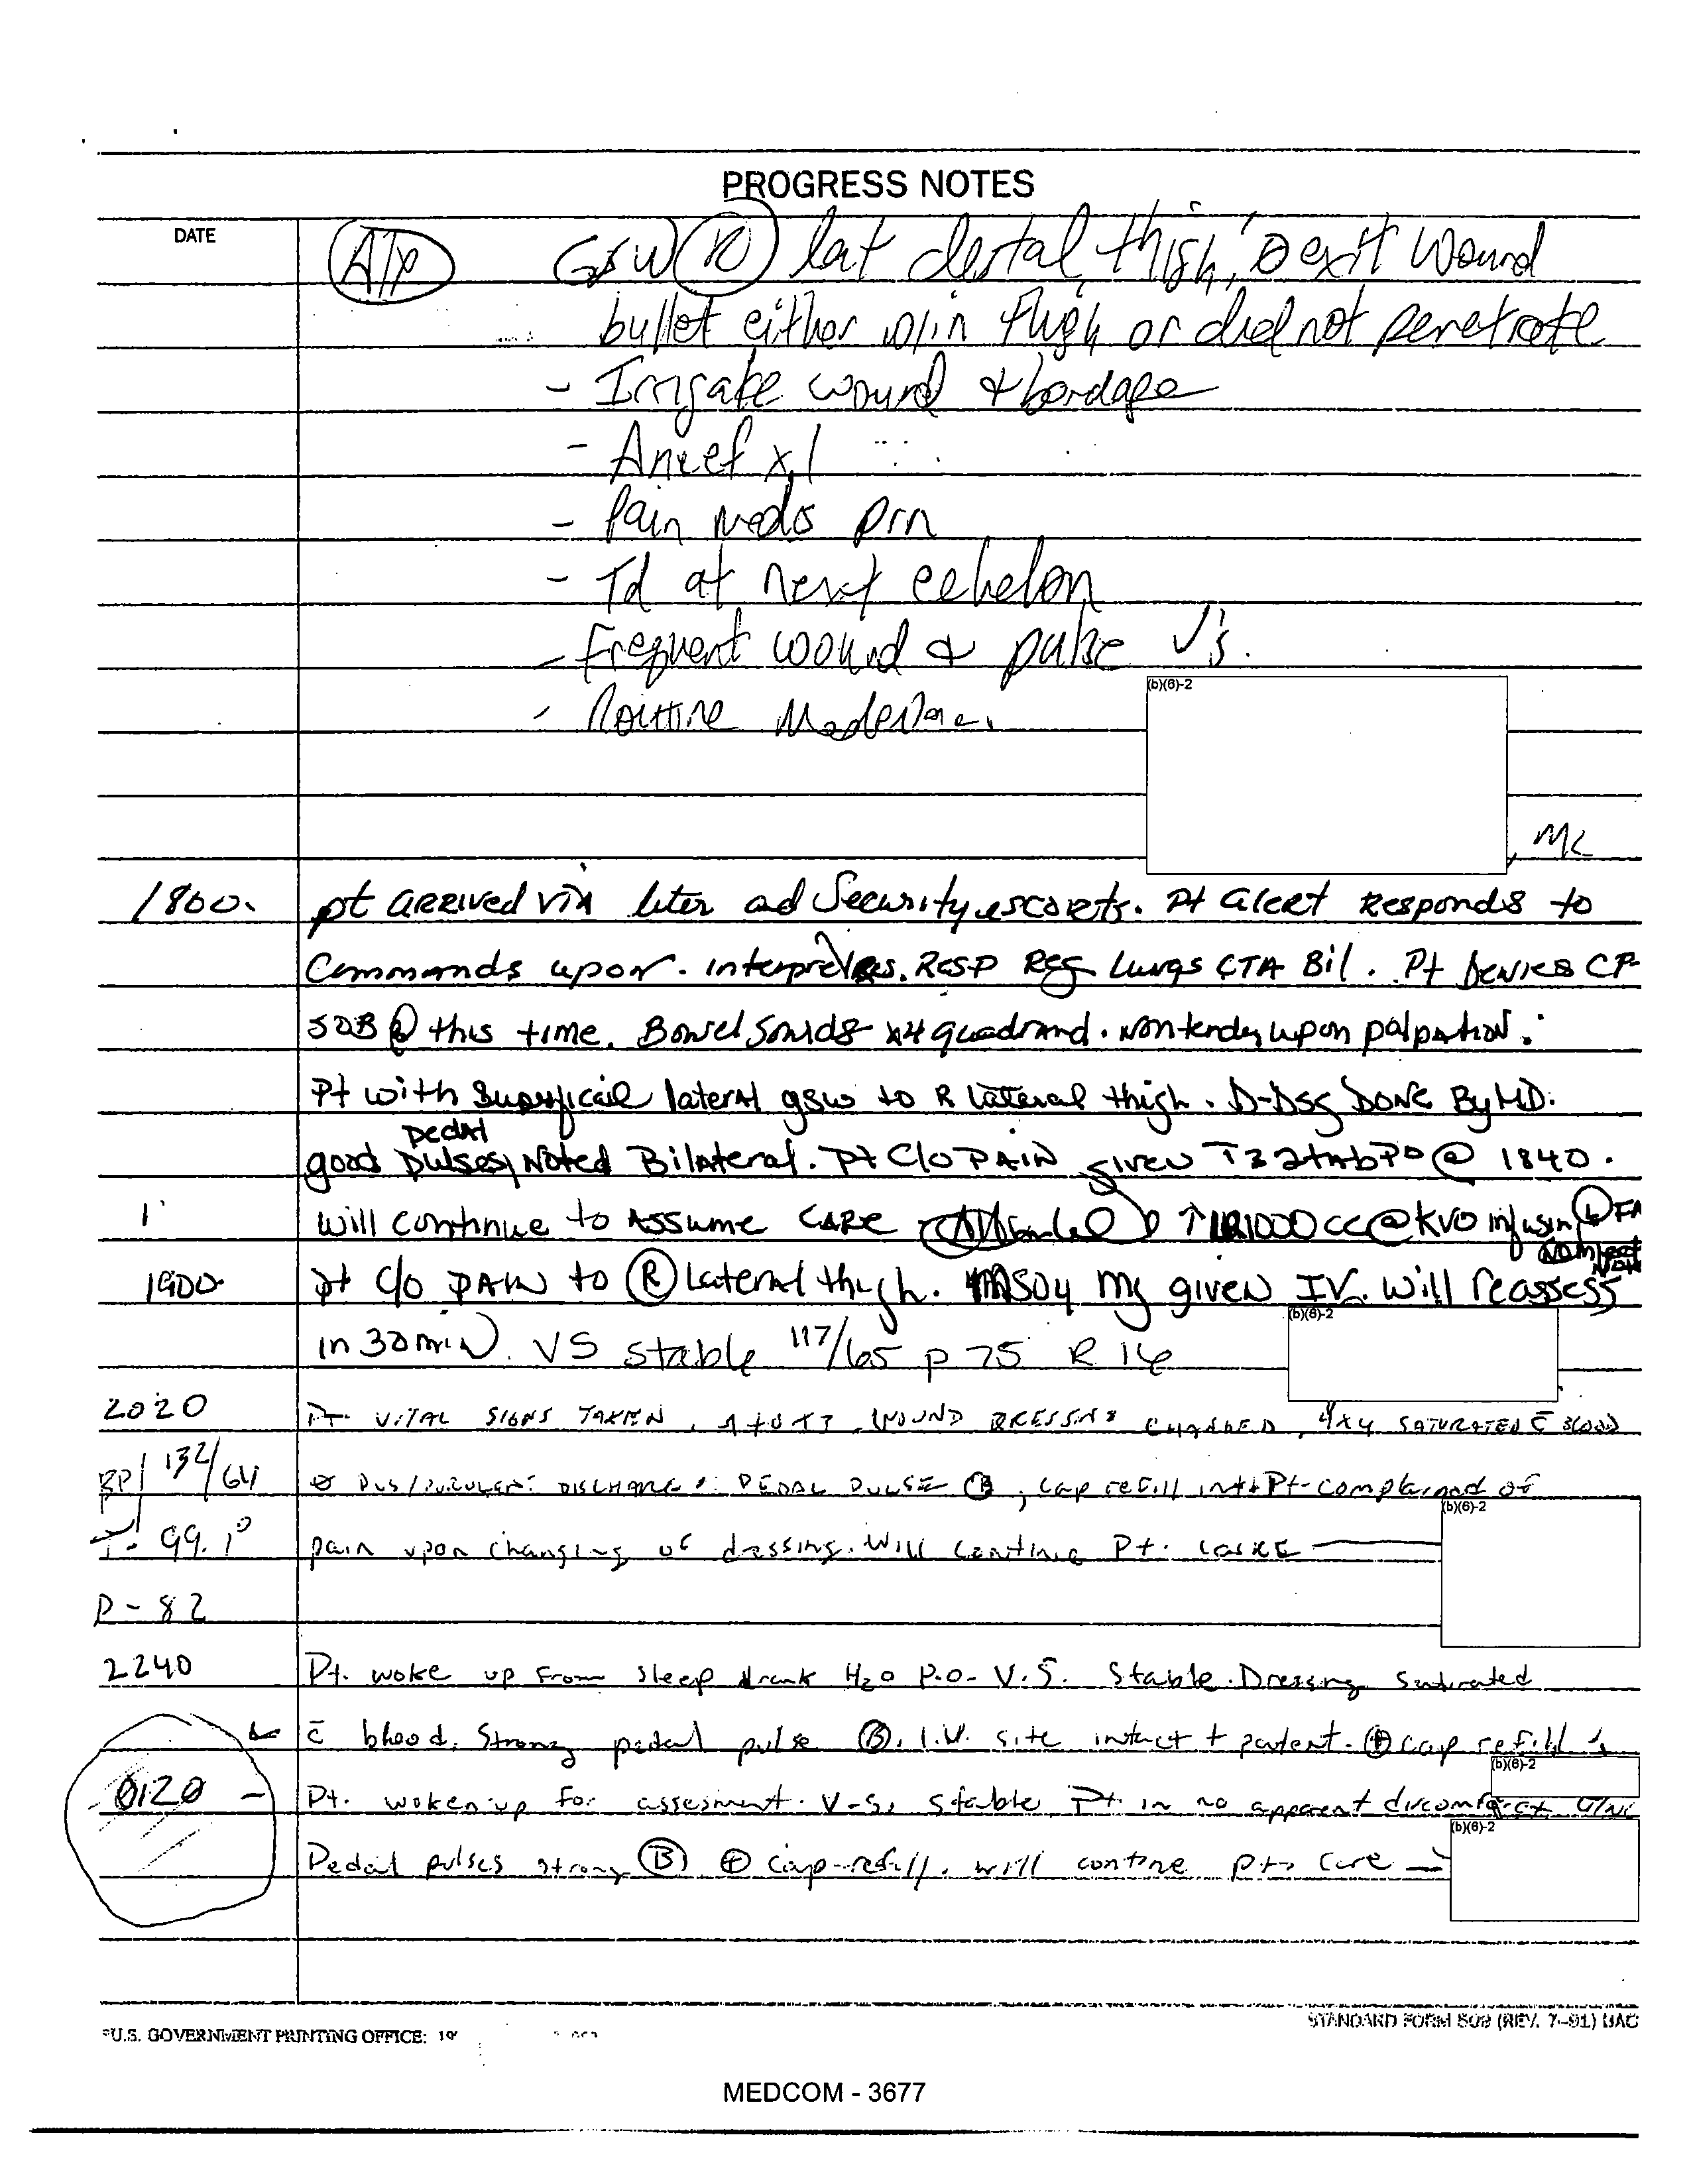 PROGRESS NOTES
DATE
A/P GSW (R) lat distal thigh, exit wound
bullet either w/in thigh or did not penetrate
- Irrigate wound + bandage
- Ancef x 1
- Pain meds prn
- Td at next echelon
- Frequent wound & pulse √'s.
- Routine Medevac.
(b)(6)-2
, MC
1800. pt arrived via liter and Security escorts. Pt alert Responds to
Commands upon interpreters. Resp Reg Lungs CTA Bil. Pt Denies CP
SOB @ this time. Bowel Sounds x4 quadrand. Nontender upon palpation.
Pt with Superficail lateral gsw to R lateral thigh. D-Dsg DONE By MD.
good pedal pulses Noted Bilateral. Pt C/O PAIN given T3 2tab PO @ 1840.
will continue to Assume CARE LR 1000 cc @ KVO infusin (L) FA
1900 pt c/o PAIN to (R) lateral thigh. MSO4 mg given IV. Will reassess
in 30 min. VS stable 117/65 p 75 R 16
(b)(6)-2
2020 Pt. VITAL SIGNS TAKEN, A+OX3, WOUND DRESSING CHANGED, 4x4 SATURATED c̄ BLOOD
BP/ 132/64 Ø PUS/PURULENT DISCHARGE. PEDAL PULSE (B), cap refill Pt complained of
(b)(6)-2
T- 99.1° pain upon changing of dressing. Will continue Pt. care
P- 82
2240 Pt. woke up from sleep drank H2O P.O. V.S. Stable. Dressing Saturated
c̄ blood. Strong pedal pulse (B). I.V. site intact + patent. (+) cap refill
(b)(6)-2
0120 - Pt. woken up for assesment. V.S. stable, Pt in no apparent discomfort
(b)(6)-2
Pedal pulses strong (B) (+) cap-refill. will contine pts care
*U.S. GOVERNMENT PRINTING OFFICE: 19
STANDARD FORM 509 (REV. 7-91) BAC
MEDCOM - 3677